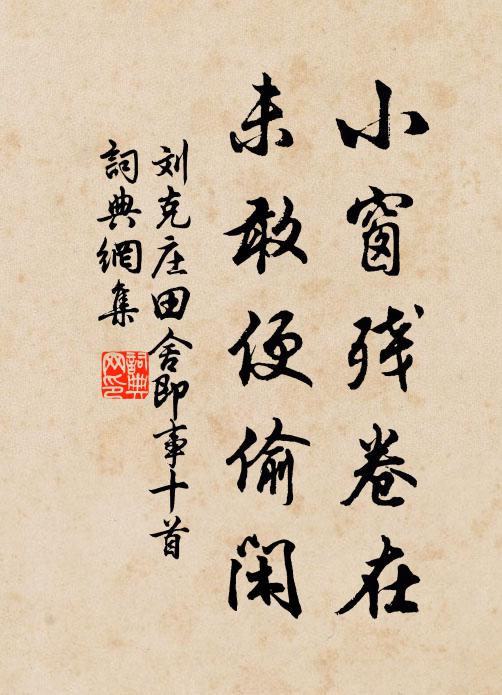 小窗残卷在
未敢便偷闲
刘克庄田舍即事十首
詞典網集
詞典网印